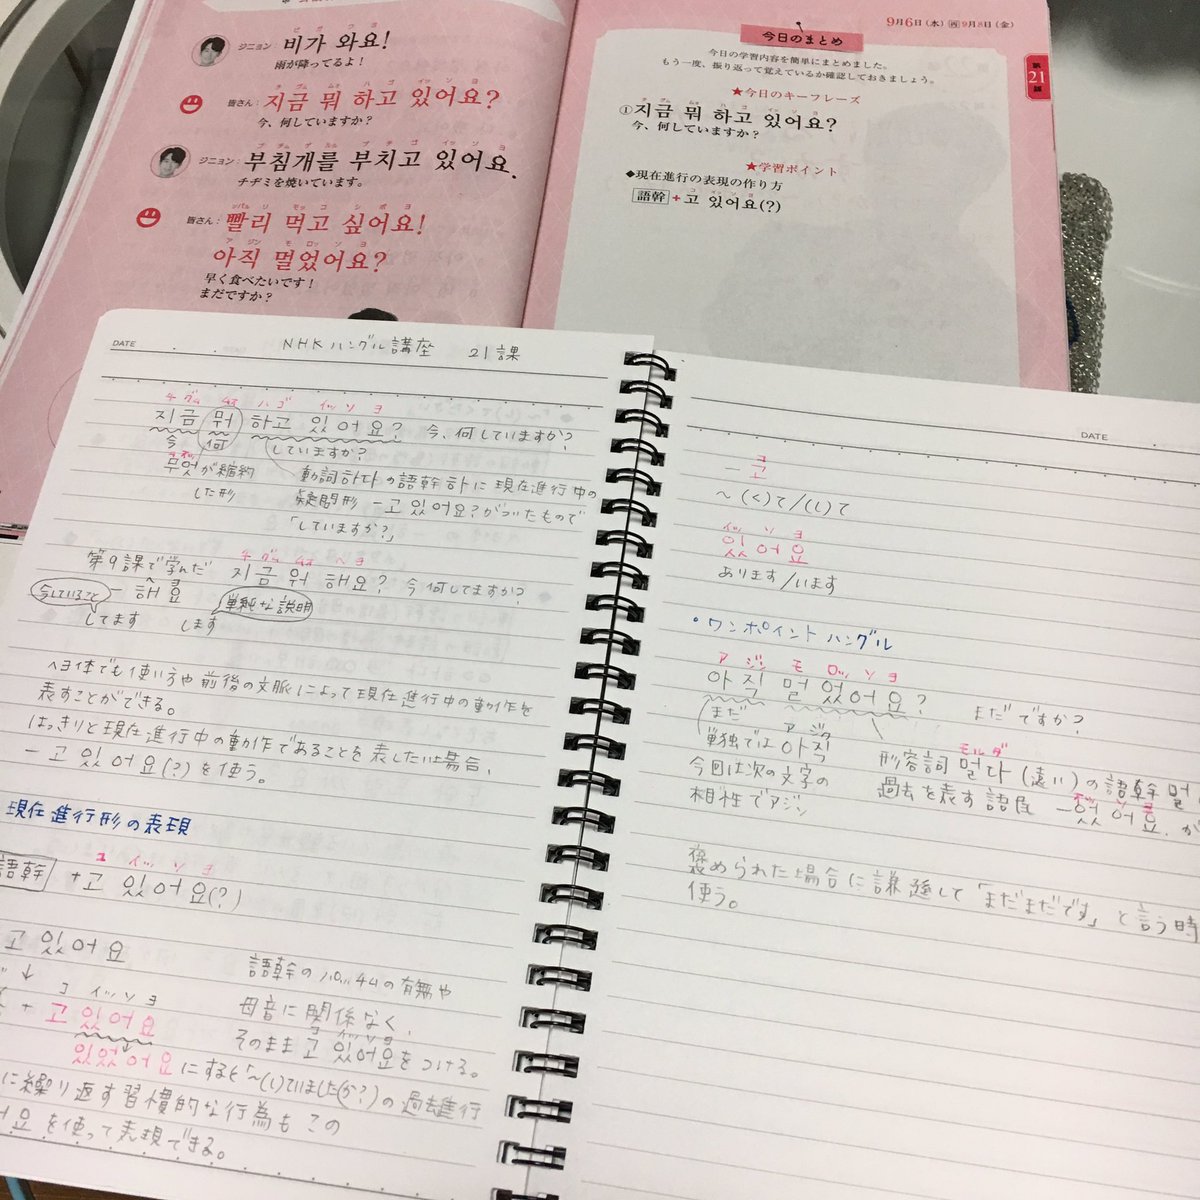 ピ ガ ワ ヨ
ジニョン: 비가 와요!
雨が降ってるよ!
チ グム ムォ ハ ゴ イッ ソ ヨ
皆さん: 지금 뭐 하고 있어요?
今、何していますか?
プ チム ゲ ルル プ チ ゴ イッ ソ ヨ
ジニョン: 부침개를 부치고 있어요.
チヂミを焼いています。
ッパル リ モッ コ シ ポ ヨ
皆さん: 빨리 먹고 싶어요!
ア ジン モ ロッ ソ ヨ
아직 멀었어요?
早く食べたいです!
まだですか?
9月6日(水) 再9月8日(金)
第21課
今日のまとめ
今日の学習内容を簡単にまとめました。
もう一度、振り返って覚えているか確認しておきましょう。
★今日のキーフレーズ
チ グム ムォ ハ ゴ イッ ソ ヨ
①지금 뭐 하고 있어요?
今、何していますか?
★学習ポイント
◆現在進行の表現の作り方
コ イッ ソ ヨ
語幹+고 있어요(?)
DATE
NHKハングル講座 21課
チ グム ムォ ハ ゴ イッ ソ ヨ
지금 뭐 하고 있어요? 今、何していますか?
今 何 していますか?
무엇が縮約
した形
動詞하다の語幹하に現在進行中の
疑問形 -고 있어요?がついたもので
「していますか?」
第9課で学んだ
チ グム ムォ ヘ ヨ
지금 뭐 해요? 今何してますか?
ヘ ヨ
今していること -해요 単純な説明
してます します
ヘヨ体でも使い方や前後の文脈によって現在進行中の動作を
表すことができる。
はっきりと現在進行中の動作であることを表したい場合、
-고 있어요(?)を使う。
現在進行形の表現
コ イッ ソ ヨ
語幹 +고 있어요(?)
고 있어요
↓ コ イッ ソ ヨ
+ 고 있어요
語幹のパッチムの有無や
母音に関係なく、
コ イッ ソ ヨ
そのまま고 있어요をつける。
있었어요にすると「~(し)ていました(か?)の過去進行
に繰り返す習慣的な行為もこの
어요を使って表現できる。
DATE
コ
고
~(く)て/(し)て
イッ ソ ヨ
있어요
あります/います
・ワンポイントハングル
ア ジン モ ロッ ソ ヨ
아직 멀었어요? まだですか?
まだ
アジク
単独では아직
今回は次の文字の
相性でアジン
モルダ
形容詞멀다(遠い)の語幹멀
過去を表す語尾 -었어요.が
褒められた場合に謙遜して「まだまだです」と言う時
使う。